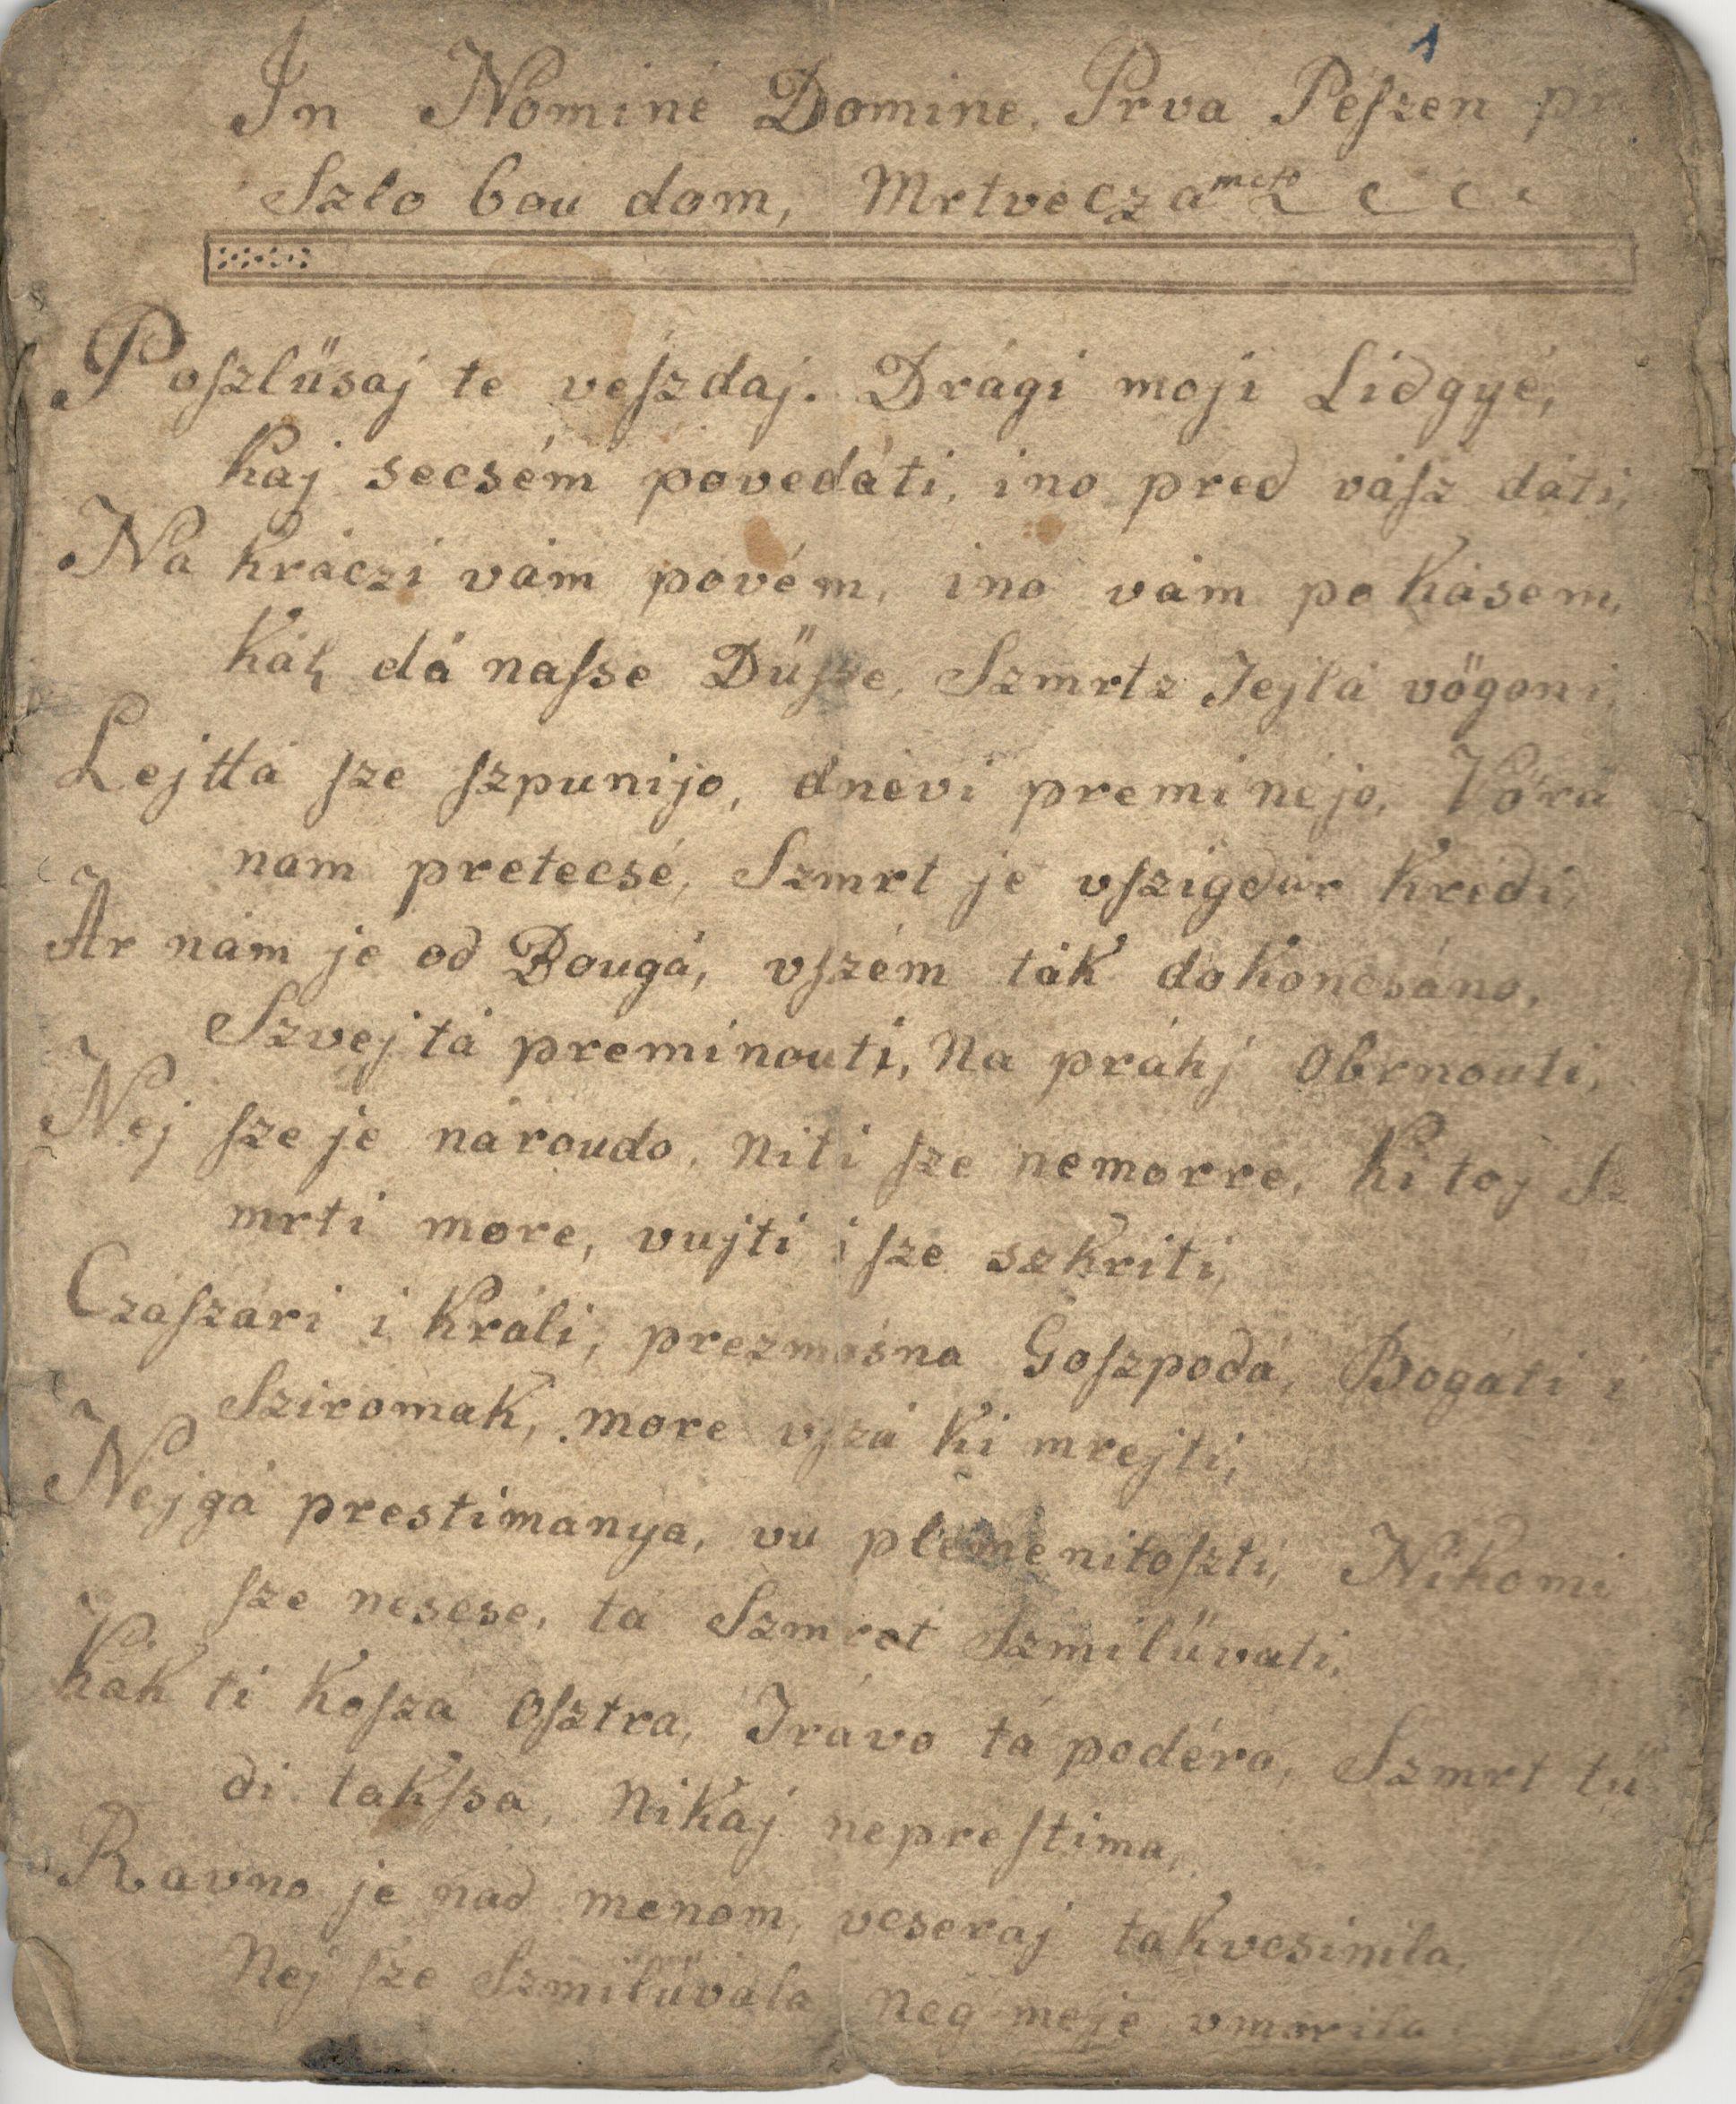 1
In Nominé Domine. Prva Péſzen pr
Szlo bou dom, Mrtvecza
Poſzlűsaj te veſzdaj. Drági moji Lidgyé,
kaj secsém povedáti, ino pred váſz dáti,
Na kráczi vám povém, ino vám po kásem,
Kák dá naſse Dűſse, Szmrtz Tejlá vögoni
Lejtta ſze ſzpunijo, dnévi preminéjo, Vöra
nam pretecsé, Szmrt je vſzigdár kredi,
Ár nám je od Bougá, vſzém ták dokoncsáno,
Szvejtá preminouti, Na práhj Obrnouti,
Nej ſze je národo, Niti ſze nemorre, Ki toj Sz
mrti more, vujti i ſze szkriti,
Czaſzári i Králi, prezmosna Goſzpodá, Bogáti i
Sziromak, more vſzá ki mrejti,
Nejgá prestimanya, vu plemenitoſzti, Nikomi
ſze nescse, tá Szmrt Szmilűvati,
Kák ti Koſzá Oſztra, Trávo tá podéra, Szmrt tű
di takſsa, Nikaj nepreſtima,
Ravno je nad menom, vcseraj tak vcsinila,
Nej ſze Szmilűvala Neg me je vmorila